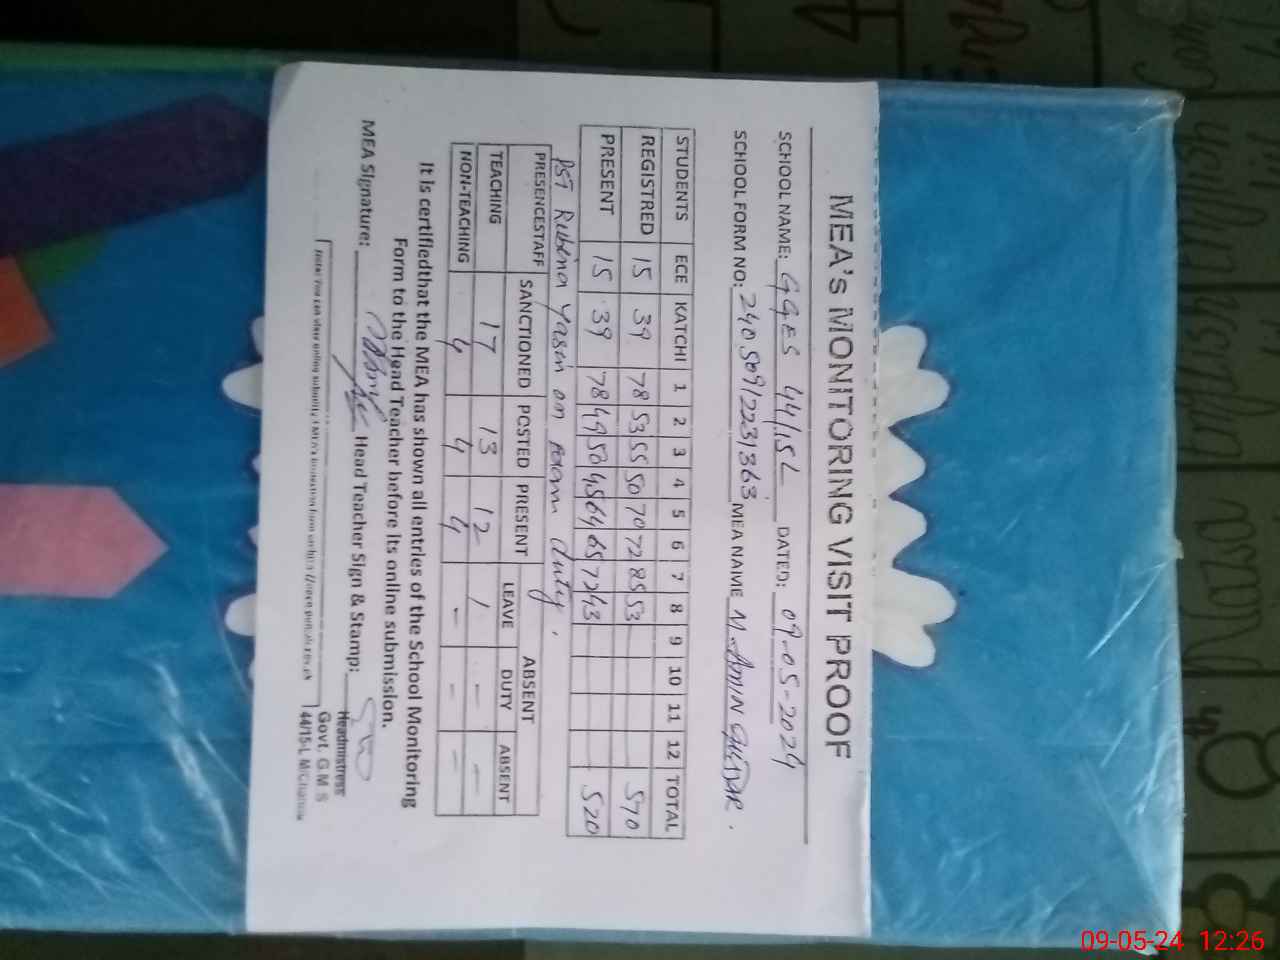 MEA's MONITORING VISIT PROOF
SCHOOL NAME: GGES 44/15L DATED: 09-05-2024
SCHOOL FORM NO: 240509/2231363 MEA NAME M. AMIN
STUDENTS ECE KATCHI 1 2 3 4 5 6 7 8 9 10 11 12 TOTAL
REGISTRED 15 39 78 53 55 50 70 72 85 53 570
PRESENT 15 39 78 49 50 45 64 65 72 43 520
PST Rubina Yasin on Exam duty.
PRESENCESTAFF SANCTIONED POSTED PRESENT ABSENT
LEAVE DUTY ABSENT
TEACHING 17 13 12 1 - -
NON-TEACHING 4 4 4 - - -
It is certifiedthat the MEA has shown all entries of the School Monitoring
Form to the Head Teacher before its online submission.
MEA Signature: Head Teacher Sign & Stamp:
Headmistress
Govt. G M S
44/15-L
Note: You can view online
8th
English
09-05-24 12:26